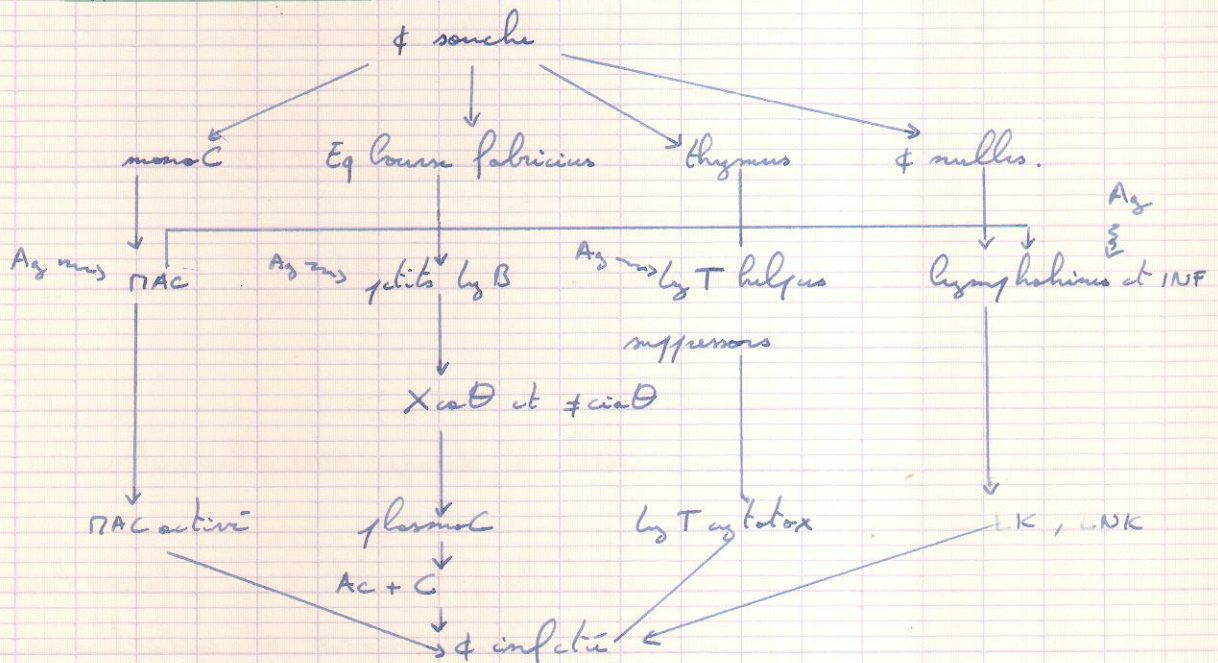 ¢ souche
monoC Eq bourse fabricius thymus ¢ nulles.
Ag
Ag MAC Ag ptits ly B Ag ly T helpers lymphokines et INF
suppressors
Xcaθ et ≠ciaθ
MAC activé plasmoC ly T cytotox LK, LNK
Ac + C
¢ infecté